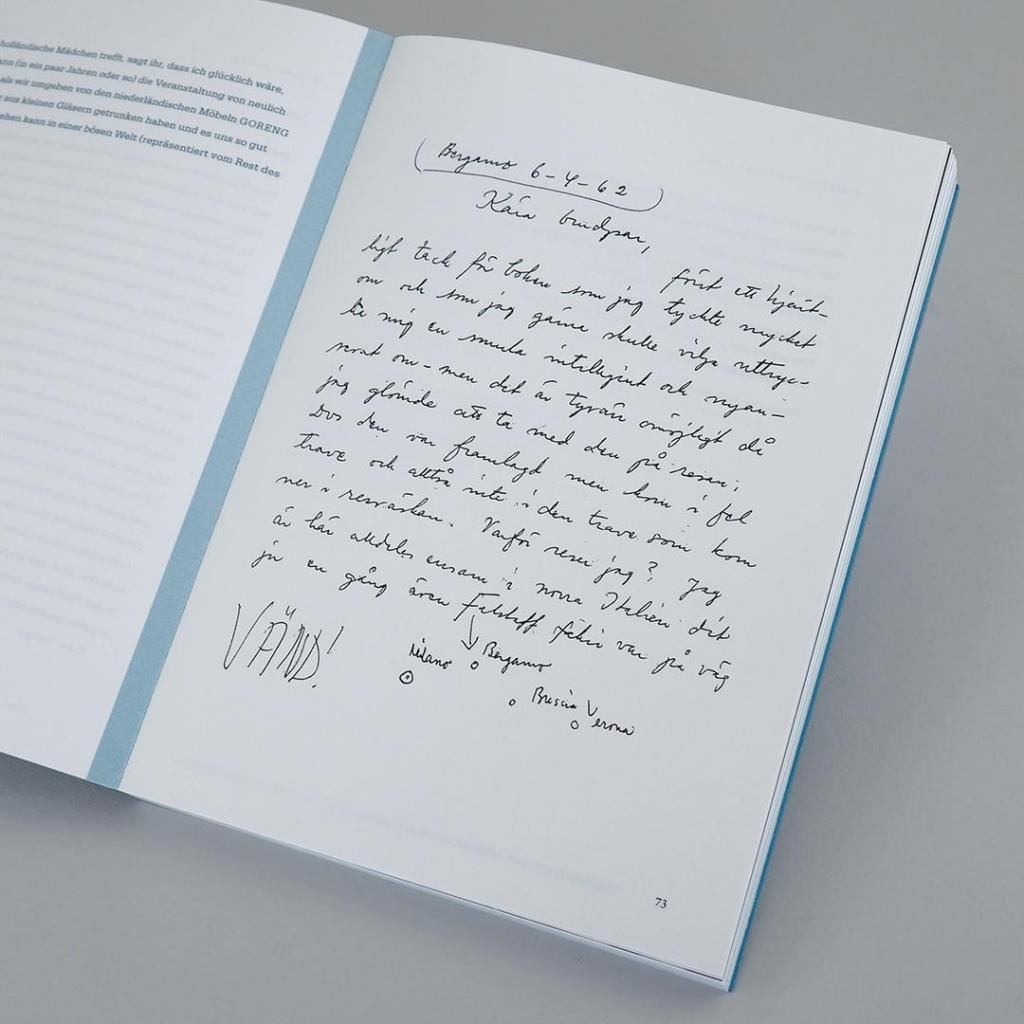 holländische Mädchen trefft, sagt ihr, dass ich glücklich wäre,
ann (in ein paar Jahren oder so) die Veranstaltung von neulich
als wir umgeben von den niederländischen Möbeln GORENG
t aus kleinen Gläsern getrunken haben und es uns so gut
ehen kann in einer bösen Welt (repräsentiert vom Rest des
Bergamo 6-4-62
Kära brudpar,
först ett hjärt-
ligt tack för boken som jag tyckte mycket
om och som jag gärna skulle vilja uttryc-
ka mig en smula intelligint och nyan-
serat om - men det är tyvärr omöjligt då
jag glömde att ta med den på resen;
Dvs den var framlagd men kom i fel
trave och alltså inte i den trave som kom
ner i resväskan. Varför reser jag? Jag
är här alldeles ensam i norra Italien dit
ju en gång även Falstiff, fakir var på väg
VÄND!
Milano
Bergamo
Brescia
Verona
73